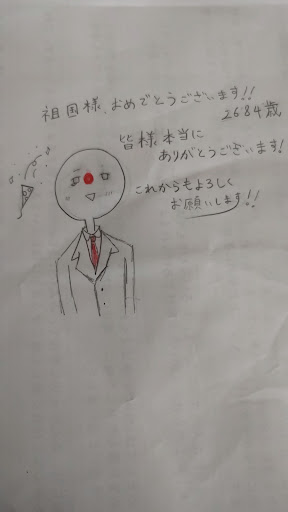 祖国様、おめでとうございます!!
2684歳
皆様本当に
ありがとうございます!
これからもよろしく
お願いします!!